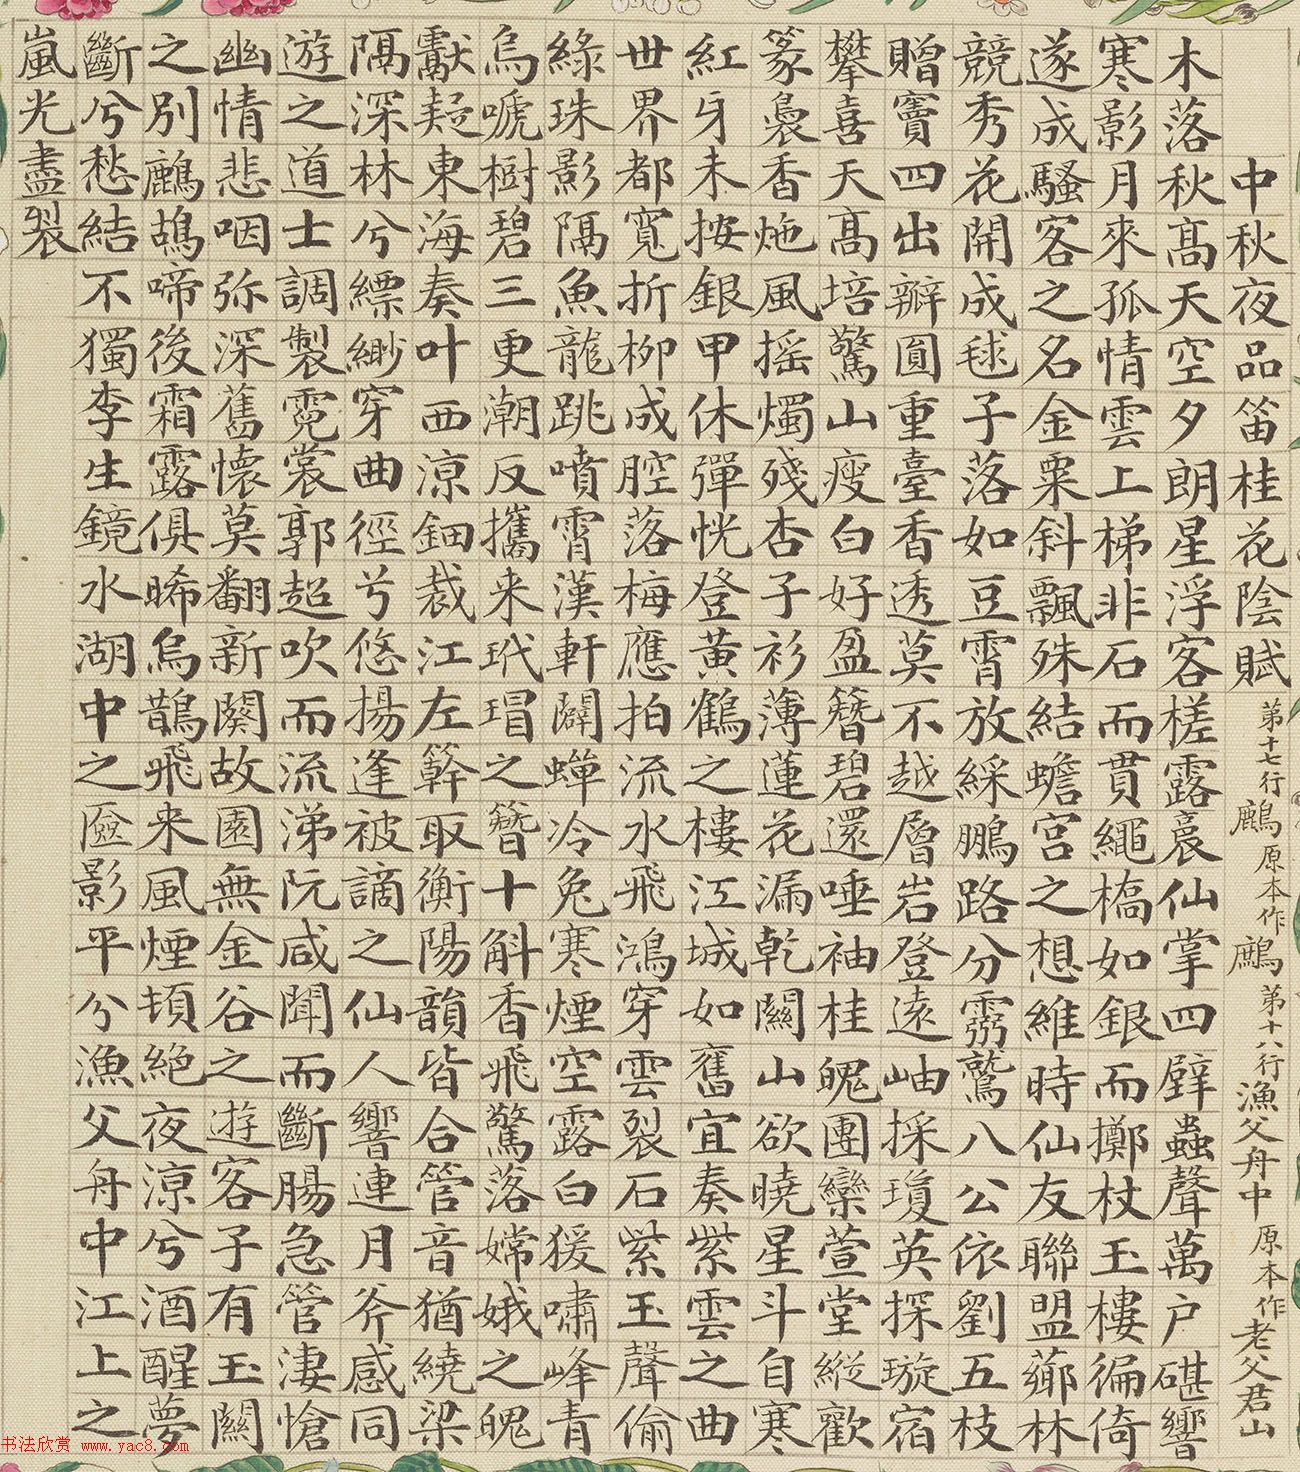 中秋夜品笛桂花陰賦 第十七行鷓原本作鷓第十八行漁父舟中原本作老父君山
木落秋高天空夕朗星浮客槎露裛仙掌四壁蟲聲萬户碪響
寒影月來孤情雲上梯非石而貫繩橋如銀而擲杖玉樓徧倚
遂成騷客之名金粟斜飄殊結蟾宮之想維時仙友聯盟薌林
競秀花開成毬子落如豆霄放綵鵬路分靈鷲八公依劉五枝
贈竇四出瓣圓重臺香透莫不越層岩登遠岫採瓊英探璇宿
攀喜天高培驚山瘦白好盈簪碧還唾袖桂魄團欒萱堂縱歡
篆裊香灺風摇燭殘杏子衫薄蓮花漏乾關山欲曉星斗自寒
紅牙未按銀甲休彈恍登黃鶴之樓江城如舊宜奏紫雲之曲
世界都寬折柳成腔落梅應拍流水飛鴻穿雲裂石紫玉聲偷
綠珠影隔魚龍跳噴霄漢軒闢蟬冷兔寒煙空露白猨嘯峰青
烏嗁樹碧三更潮反攜来玳瑁之簪十斛香飛驚落嫦娥之魄
獻疑東海奏叶西涼鈿裁江左簳取衡陽韻皆合管音猶繞梁
隔深林兮縹緲穿曲徑兮悠揚逢被謫之仙人響連月斧感同
遊之道士調製霓裳郭超吹而流涕阮咸聞而斷腸急管淒愴
幽情悲咽弥深舊懷莫翻新闋故園無金谷之遊客子有玉關
之別鷓鴣啼後霜露俱晞烏鵲飛来風煙頓絕夜涼兮酒醒夢
斷兮愁結不獨李生鏡水湖中之匳影平兮漁父舟中江上之
嵐光盡裂
书法欣赏 www.yac8.com